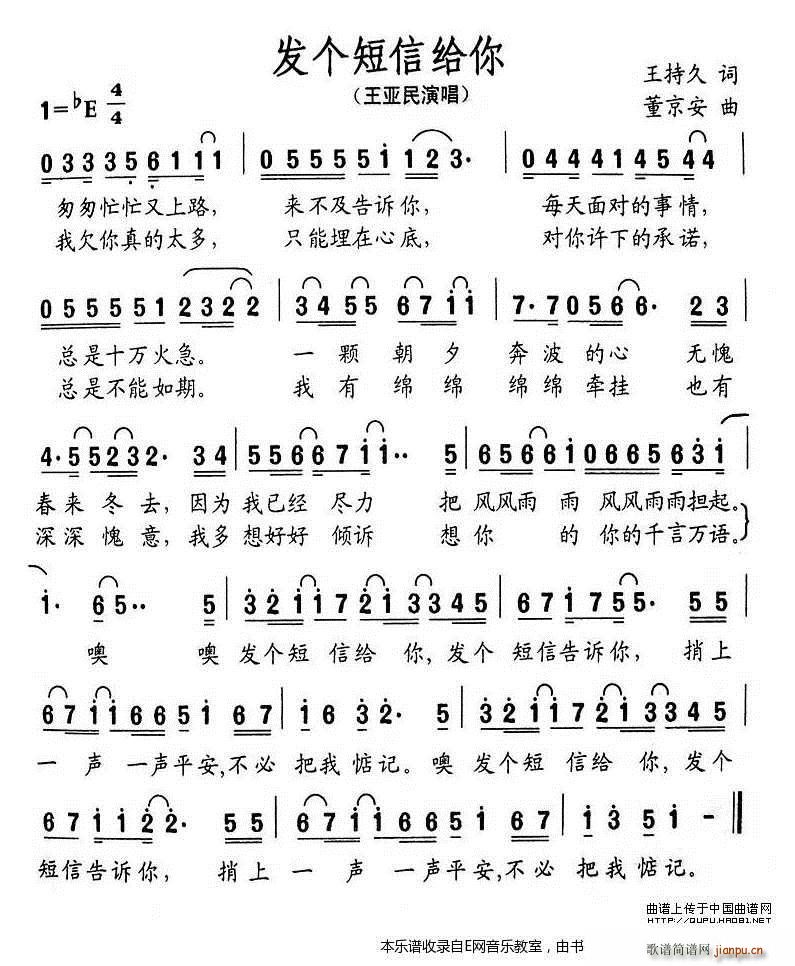 发个短信给你
(王亚民演唱)
王持久 词
董京安 曲
1=♭E 4/4
0 3 3 3 5 6 1 1 1 | 0 5 5 5 5 i 1 2 3· | 0 4 4 4 1 4 5 4 4
匆匆忙忙又上路, 来不及告诉你, 每天面对的事情,
我欠你真的太多, 只能埋在心底, 对你许下的承诺,
0 5 5 5 5 5 1 2 3 2 2 | 3 4 5 5 6 7 i i | 7· 7 0 5 6 6· 2 3
总是十万火急。 一颗朝夕奔波的心 无愧
总是不能如期。 我有绵绵绵绵牵挂 也有
4· 5 5 2 3 2· 3 4 | 5 5 6 6 7 i i·· 5 | 6 5 6 6 i 0 6 6 5 6 3 i
春来冬去, 因为我已经尽力 把风风雨雨风风雨雨担起。
深深愧意, 我多想好好倾诉 想你的你的千言万语。
i· 6 5·· 5 | 3 2 i i 7 2 i 3 3 4 5 | 6 7 i 7 5 5· 5 5
噢 噢 发个短信给你, 发个短信告诉你, 捎上
6 7 i i i 6 6 5 i 6 7 | i 6 3 2· 5 | 3 2 i i 7 2 i 3 3 4 5
一声一声平安, 不必把我惦记。 噢 发个短信给你, 发个
6 7 i i 2 2· 5 5 | 6 7 i i i 6 6 5 i 6 7 | i 3 5 i -
短信告诉你, 捎上一声一声平安, 不必把我惦记。
曲谱上传于中国曲谱网
@QUPU.HAO81.NET
本乐谱收录自E网音乐教室，由书
歌谱简谱网
jianpu.cn